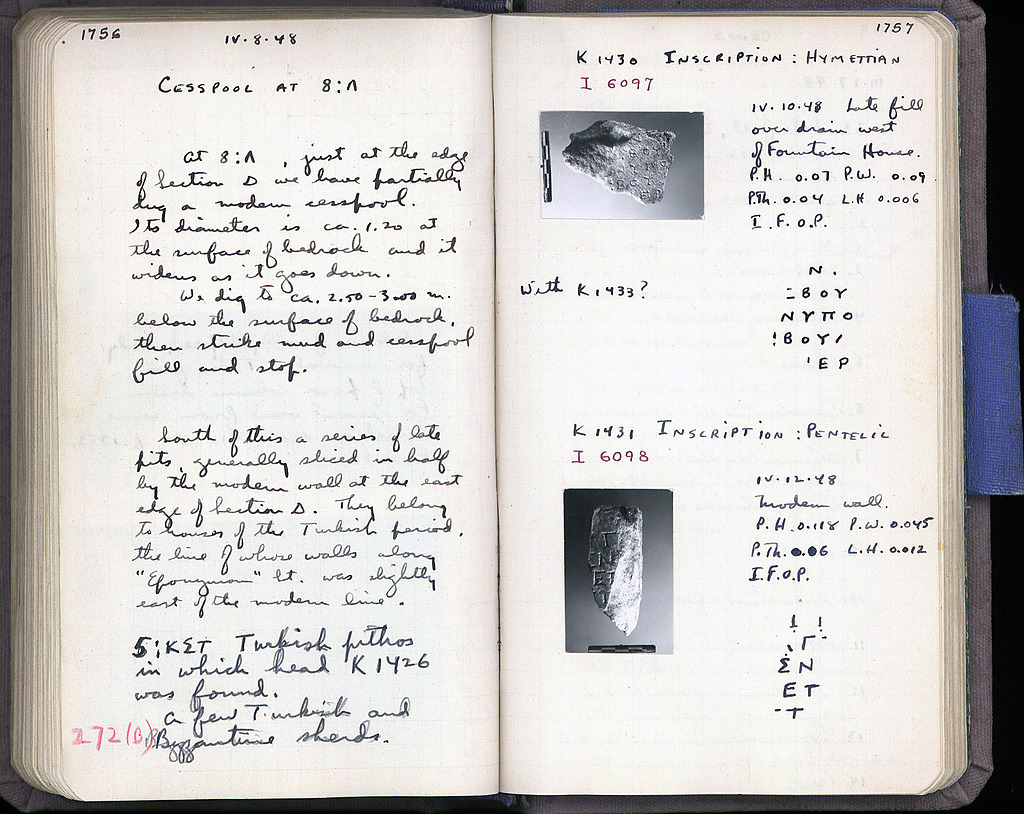 1756
IV.8.48
CESSPOOL AT 8:Λ
At 8:Λ , just at the edge
of Section Δ we have partially
dug a modern cesspool.
Its diameter is ca. 1.20 at
the surface of bedrock and it
widens as it goes down.
We dig to ca. 2.50-3.00 m.
below the surface of bedrock,
then strike mud and cesspool
fill and stop.
South of this a series of late
pits, generally sliced in half
by the modern wall at the east
edge of Section Δ. They belong
to houses of the Turkish period,
the line of whose walls along
"Eponymon" St. was slightly
east of the modern line.
5:ΚΣΤ Turkish pithos
in which head K 1426
was found.
A few Turkish and
272(B) Byzantine sherds.
1757
K 1430 INSCRIPTION : HYMETTIAN
I 6097
IV.10.48 Late fill
over drain west
of Fountain House.
P.H. 0.07 P.W. 0.09
P.Th. 0.04 L.H 0.006
I.F.O.P.
With K 1433?
Ν.
ΒΟΥ
ΝΥΠΟ
ΒΟΥ
ΕΡ
K 1431 INSCRIPTION : PENTELIC
I 6098
IV.12.48
Modern wall.
P.H. 0.118 P.W. 0.045
P.Th. 0.06 L.H. 0.012
I.F.O.P.
Γ
ΣΝ
ΕΤ
Τ